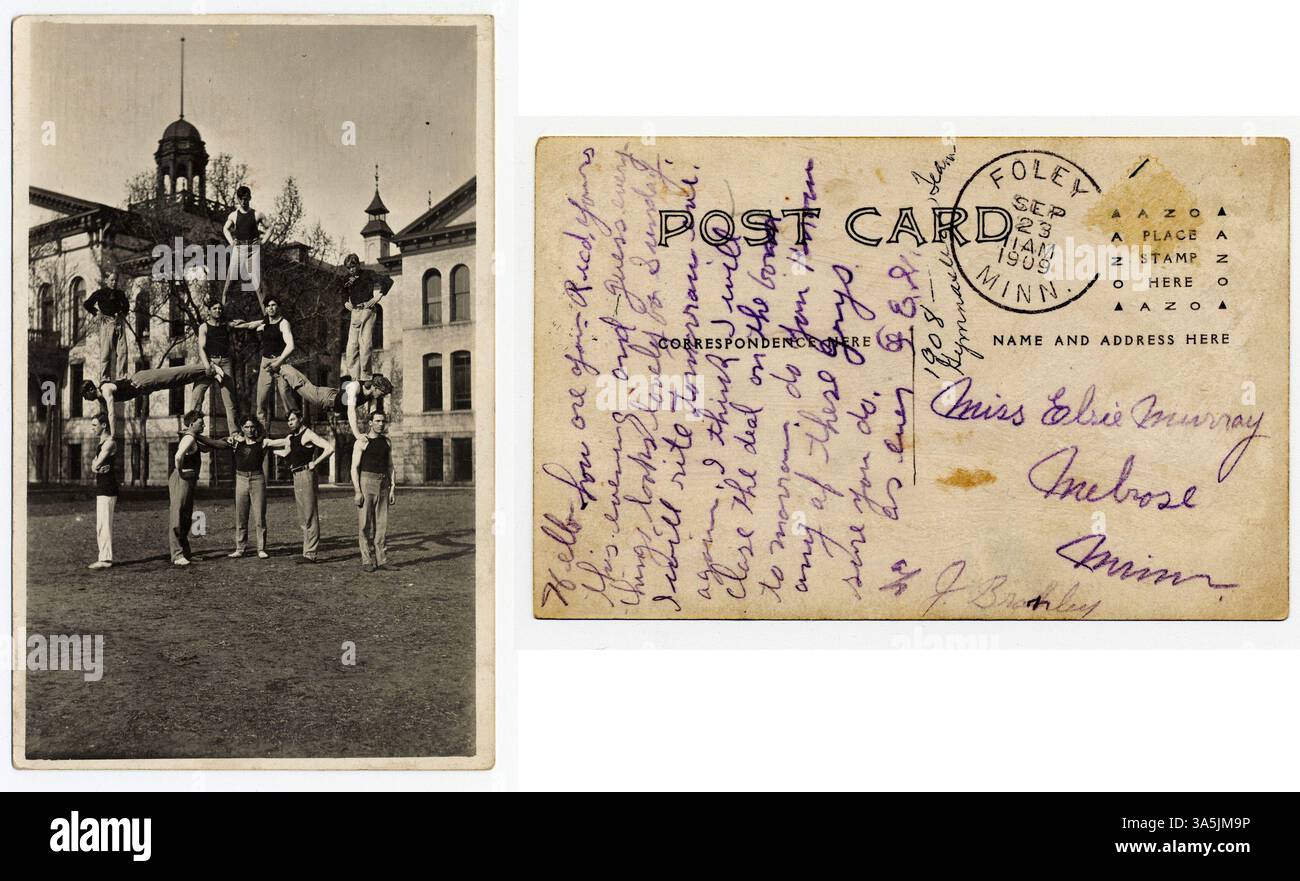 POST CARD
CORRESPONDENCE HERE
NAME AND ADDRESS HERE
FOLEY
SEP
23
1AM
1909
MINN.
AZO
PLACE
STAMP
HERE
AZO
AZO
AZO
1908 —
Gymnasium Team
Hello - how are you - Recd yours
this evening and guess every
thing looks lovely for Sunday.
I will rite tomorrow eve.
again I think I will
close the deal on the
to morrow. do you know
any of these guys
sure you do.
as ever
Miss Elsie Murray
Melrose
Minn
alamy
Image ID: 3A5JM9P
www.alamy.com